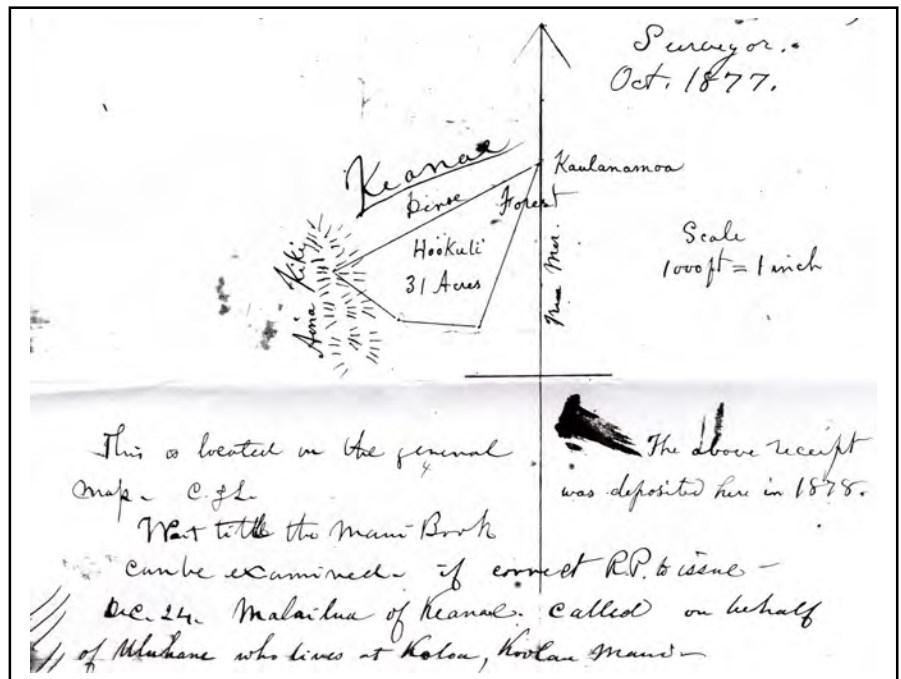 Surveyor.
Oct. 1877.
Keanae
Kaulanamoa
Dense Forest
Hookuli
31 Acres
Aina Kiki
True Mer.
Scale
1000 ft = 1 inch
This is located on the general
map - C.J.L.
The above receipt
was deposited here in 1878.
Wait till the Maui Book
can be examined - if correct R.P. to issue -
Dec. 24. Malailua of Keanae. called on behalf
of Uluhane who lives at Koloa, Koolau Maui -